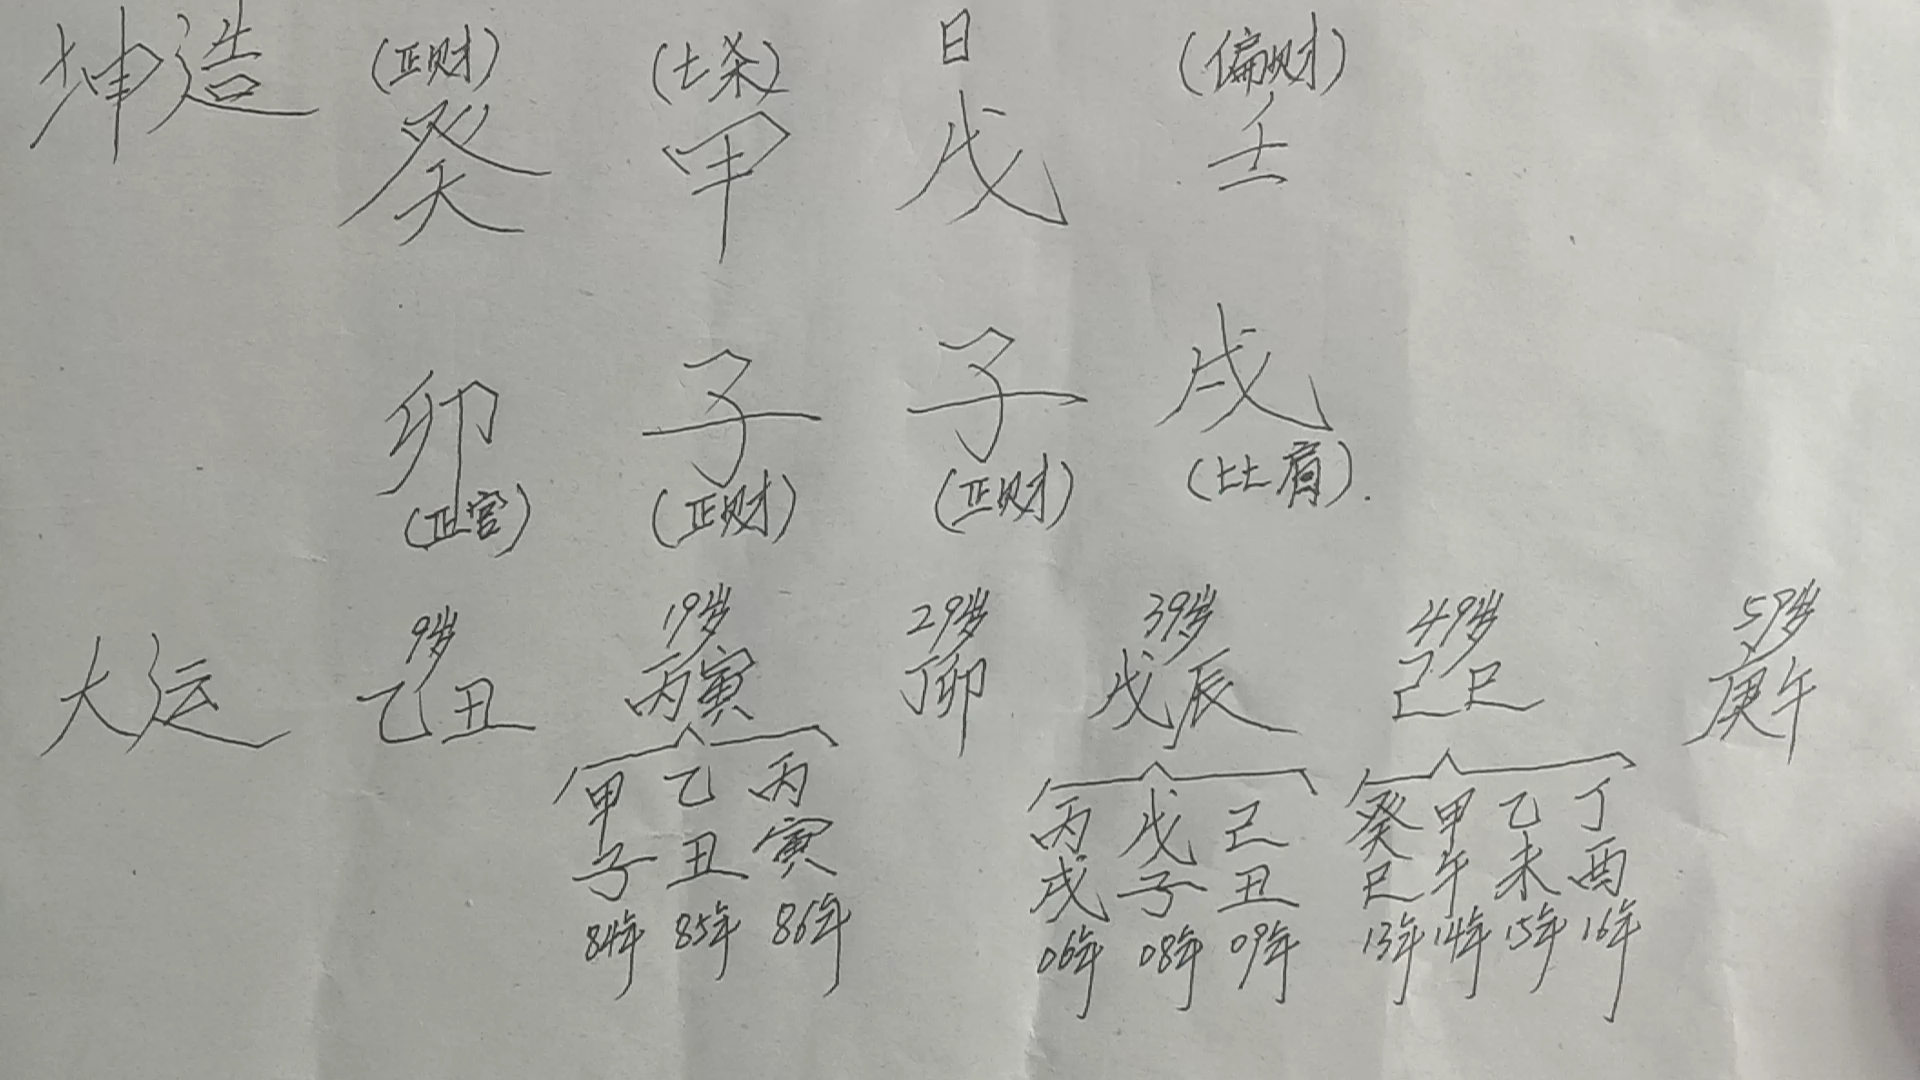 坤造 (正财) (七杀) 日 (偏财)
癸 甲 戊 壬
卯 子 子 戌
(正官) (正财) (正财) (比肩).
9岁 19岁 29岁 39岁 49岁 59岁
大运 乙丑 丙寅 丁卯 戊辰 己巳 庚午
甲子 乙丑 丙寅 丙戌 戊子 己丑 癸巳 甲午 乙未 丁酉
84年 85年 86年 06年 08年 09年 13年 14年 15年 16年